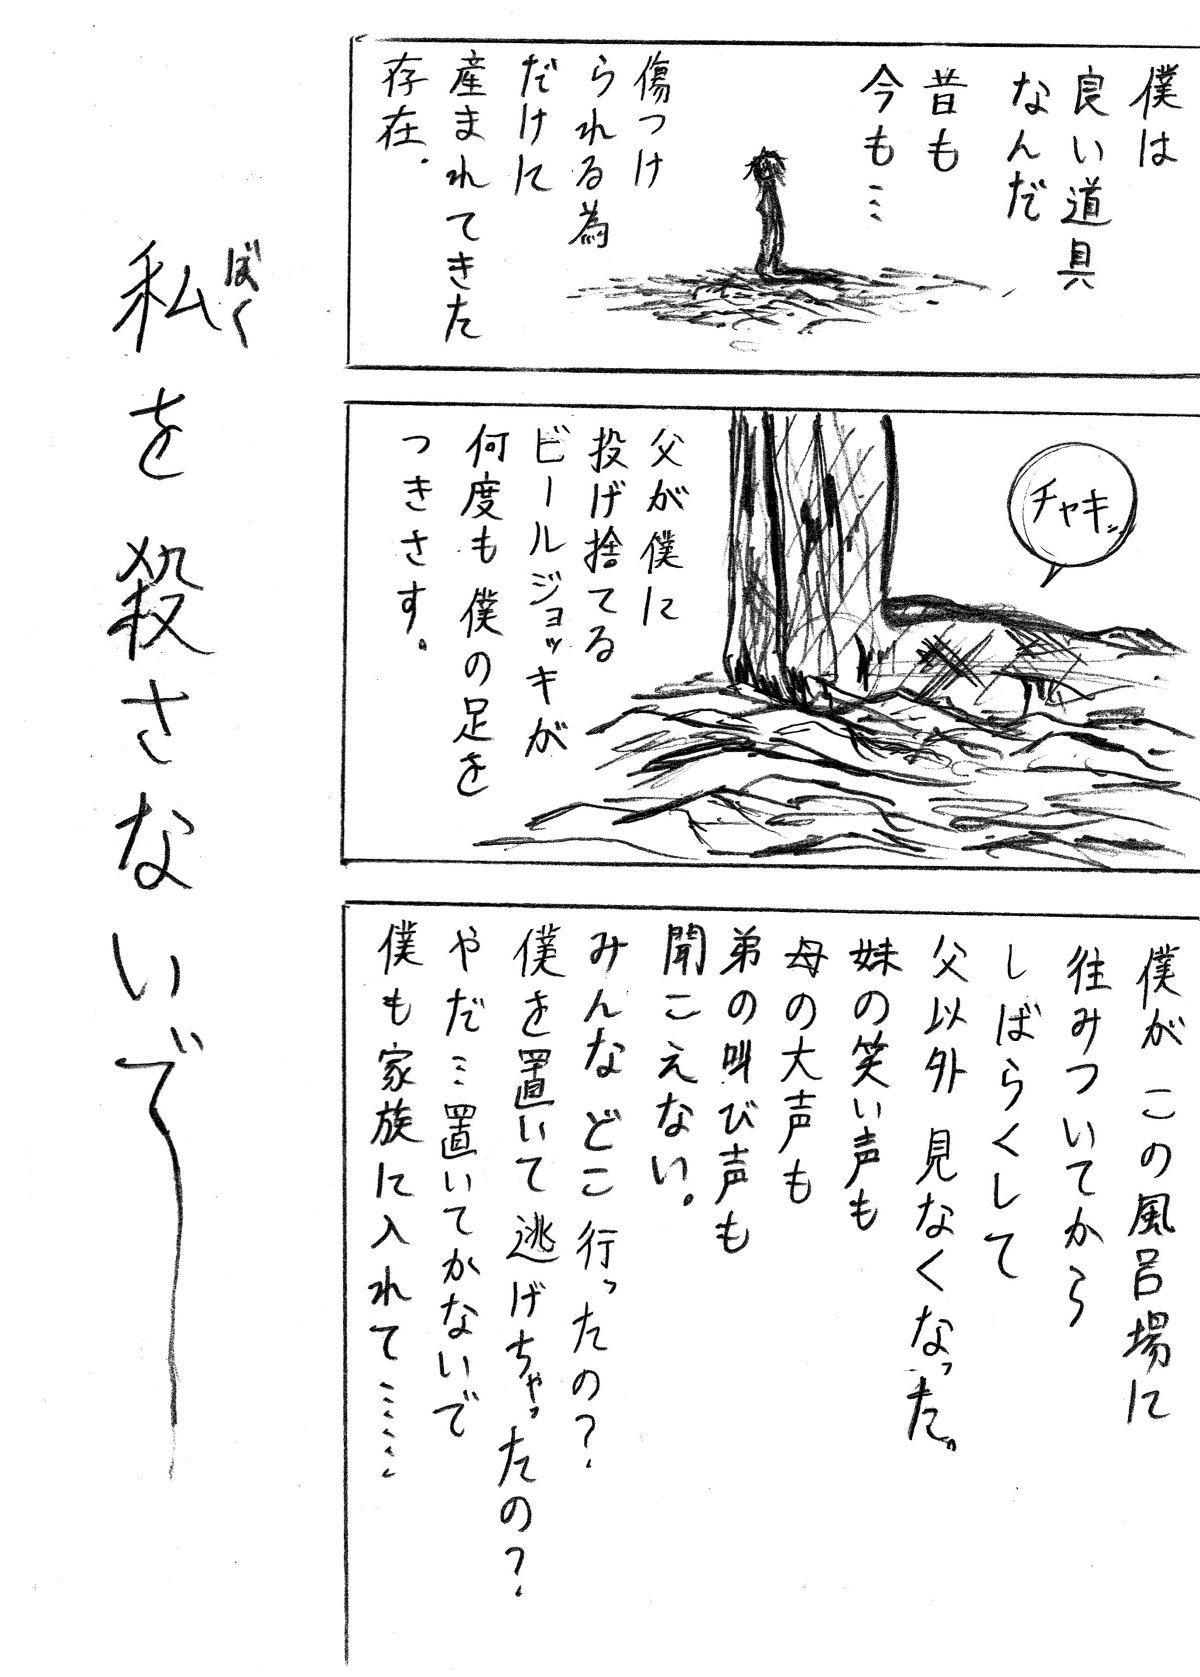 僕は
良い道具
なんだ
昔も
今も…
傷つけ
られる為
だけに
産まれてきた
存在.
チャキッ
父が僕に
投げ捨てる
ビールジョッキが
何度も僕の足を
つきさす。
僕がこの風呂場に
住みついてから
しばらくして
父以外見なくなった。
妹の笑い声も
母の大声も
弟の叫び声も
聞こえない。
みんなどこ行ったの?
僕を置いて逃げちゃったの?
やだ…置いてかないで
僕も家族に入れて……
ぼく
私を殺さないで